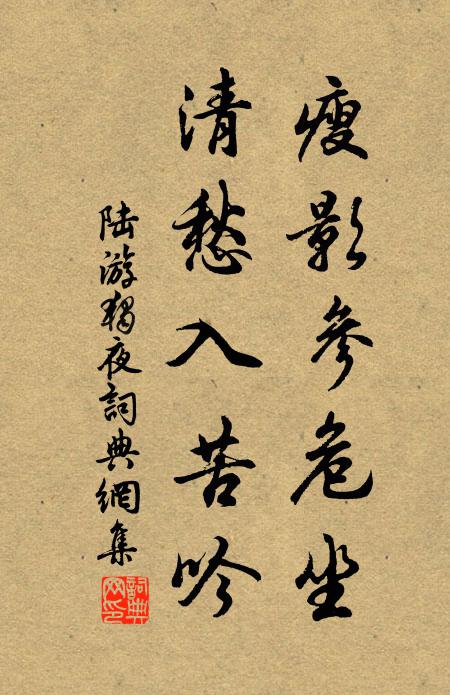 瘦影參危坐
清愁入苦吟
陆游獨夜詞典網集
詞典网印